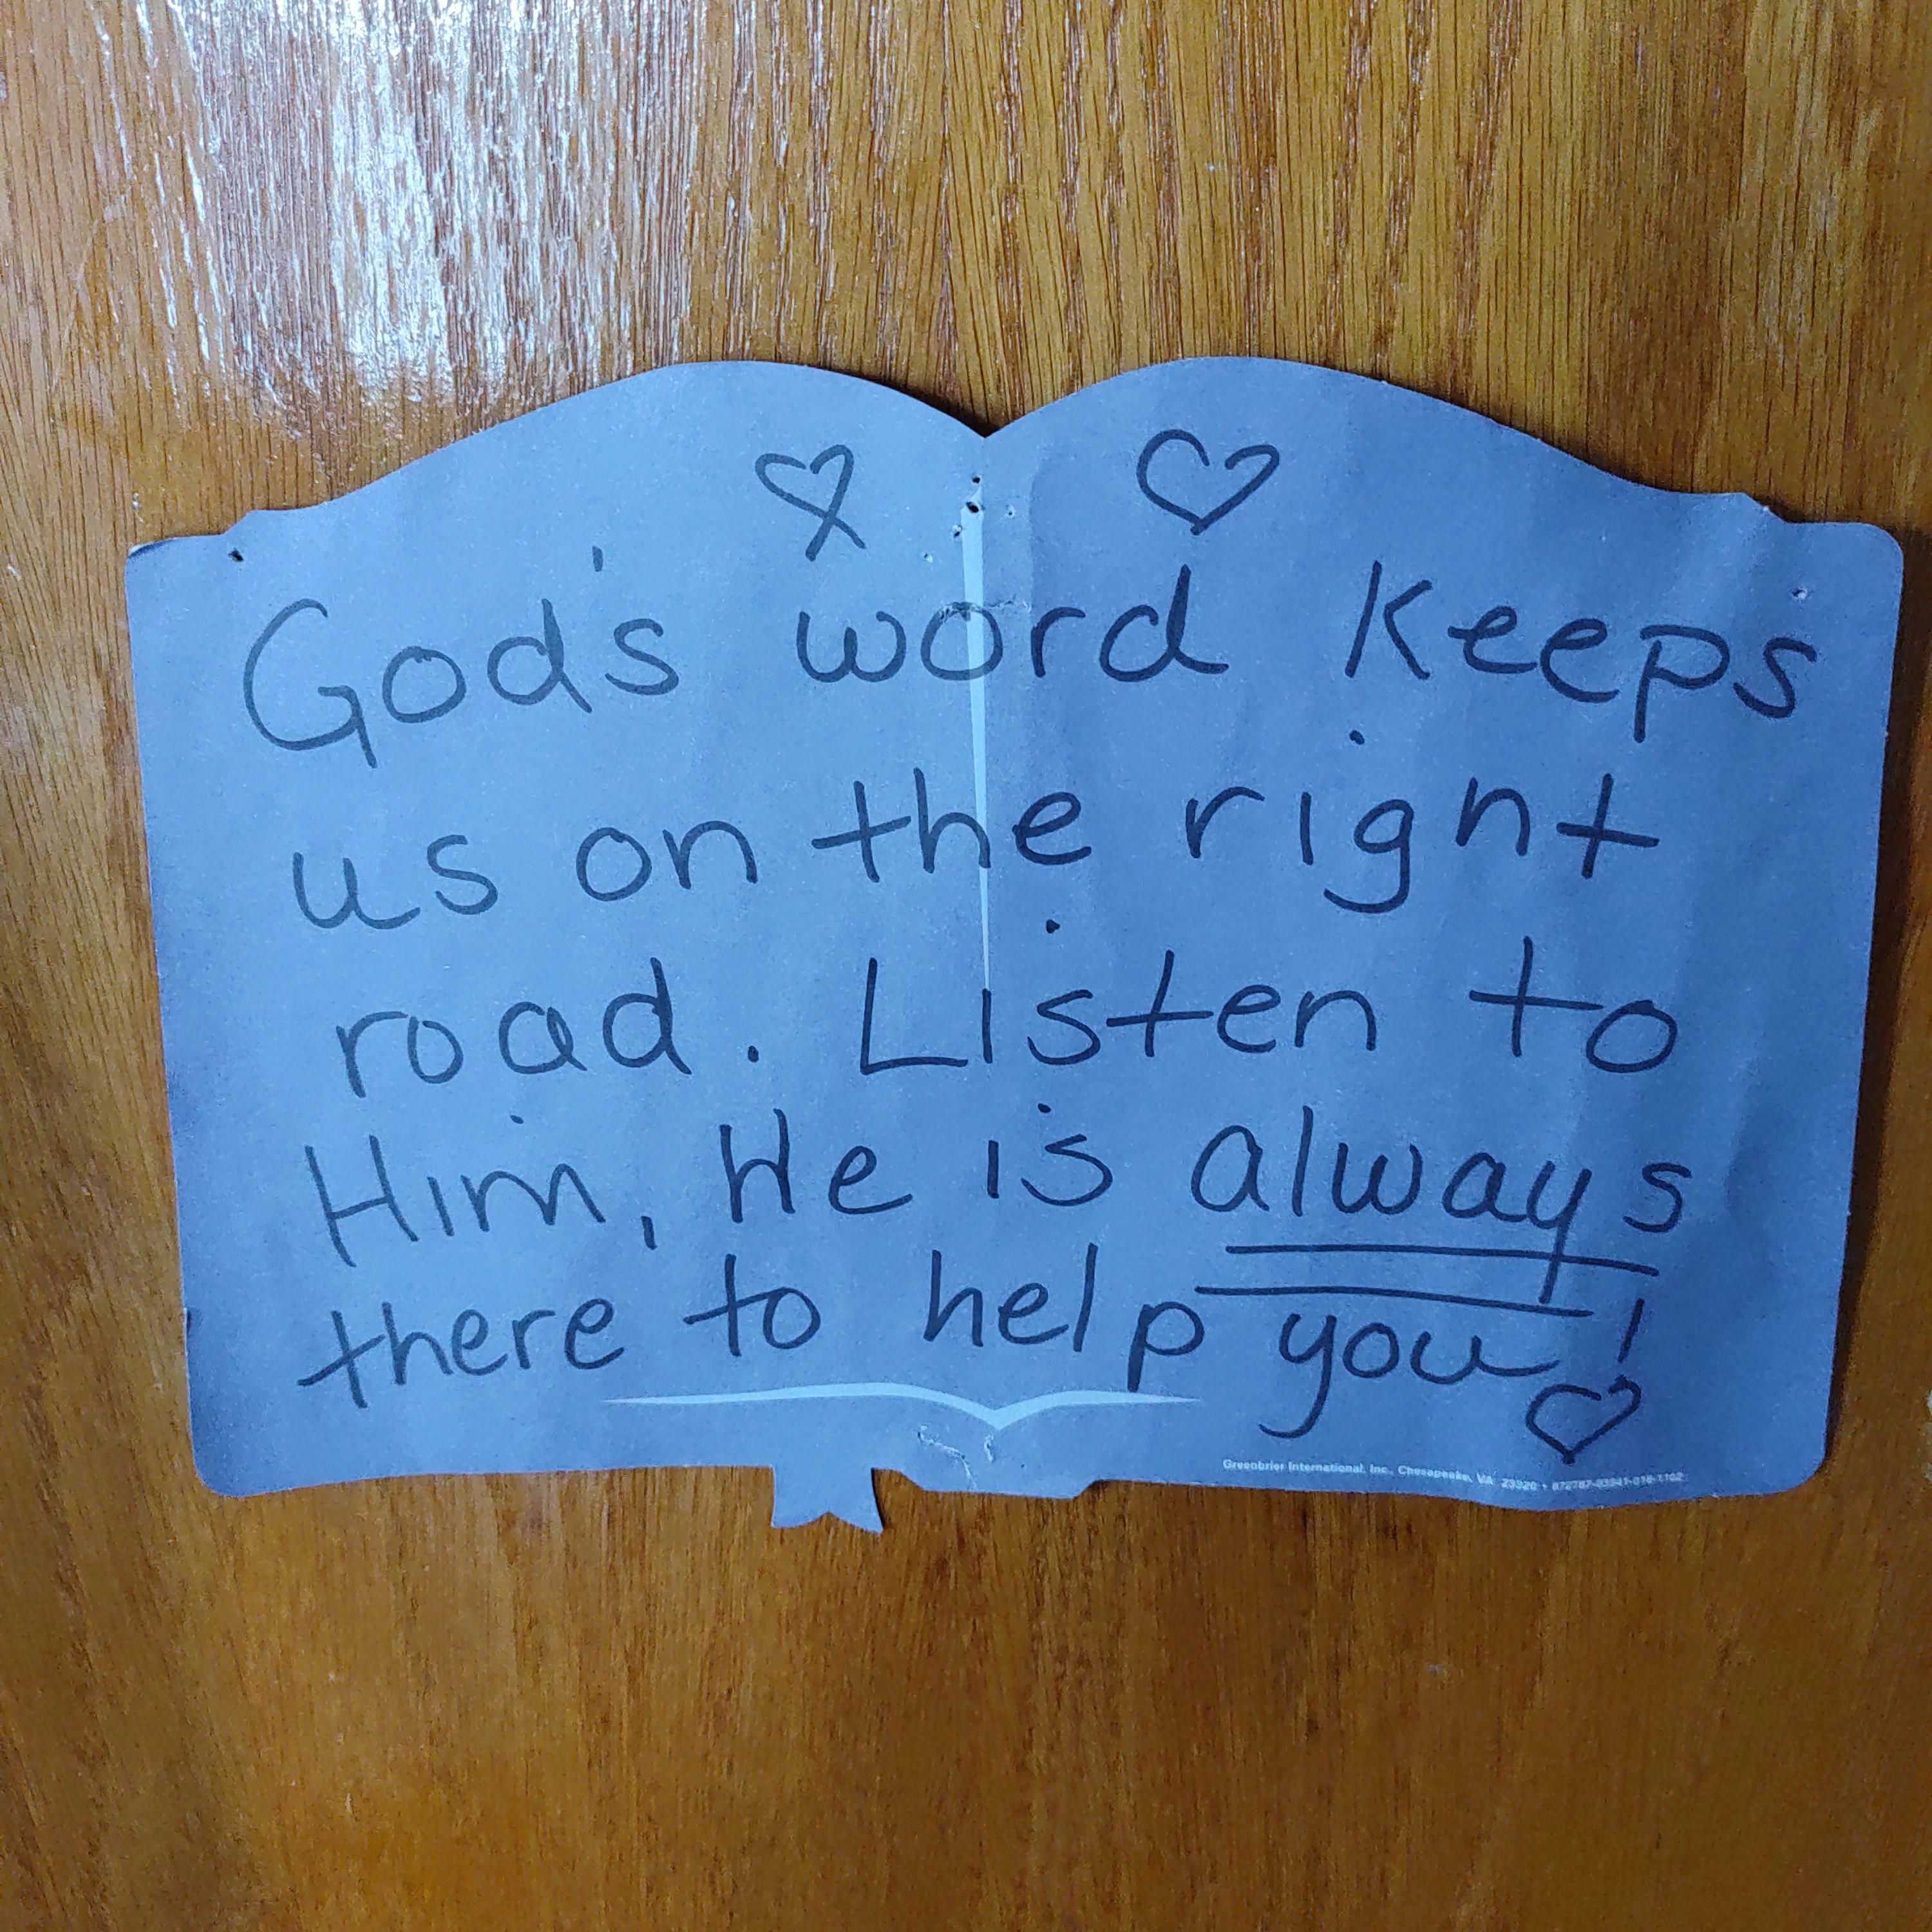 God's word keeps
us on the right
road. Listen to
Him, He is always
there to help you!
Greenbrier International, Inc., Chesapeake, VA 23320